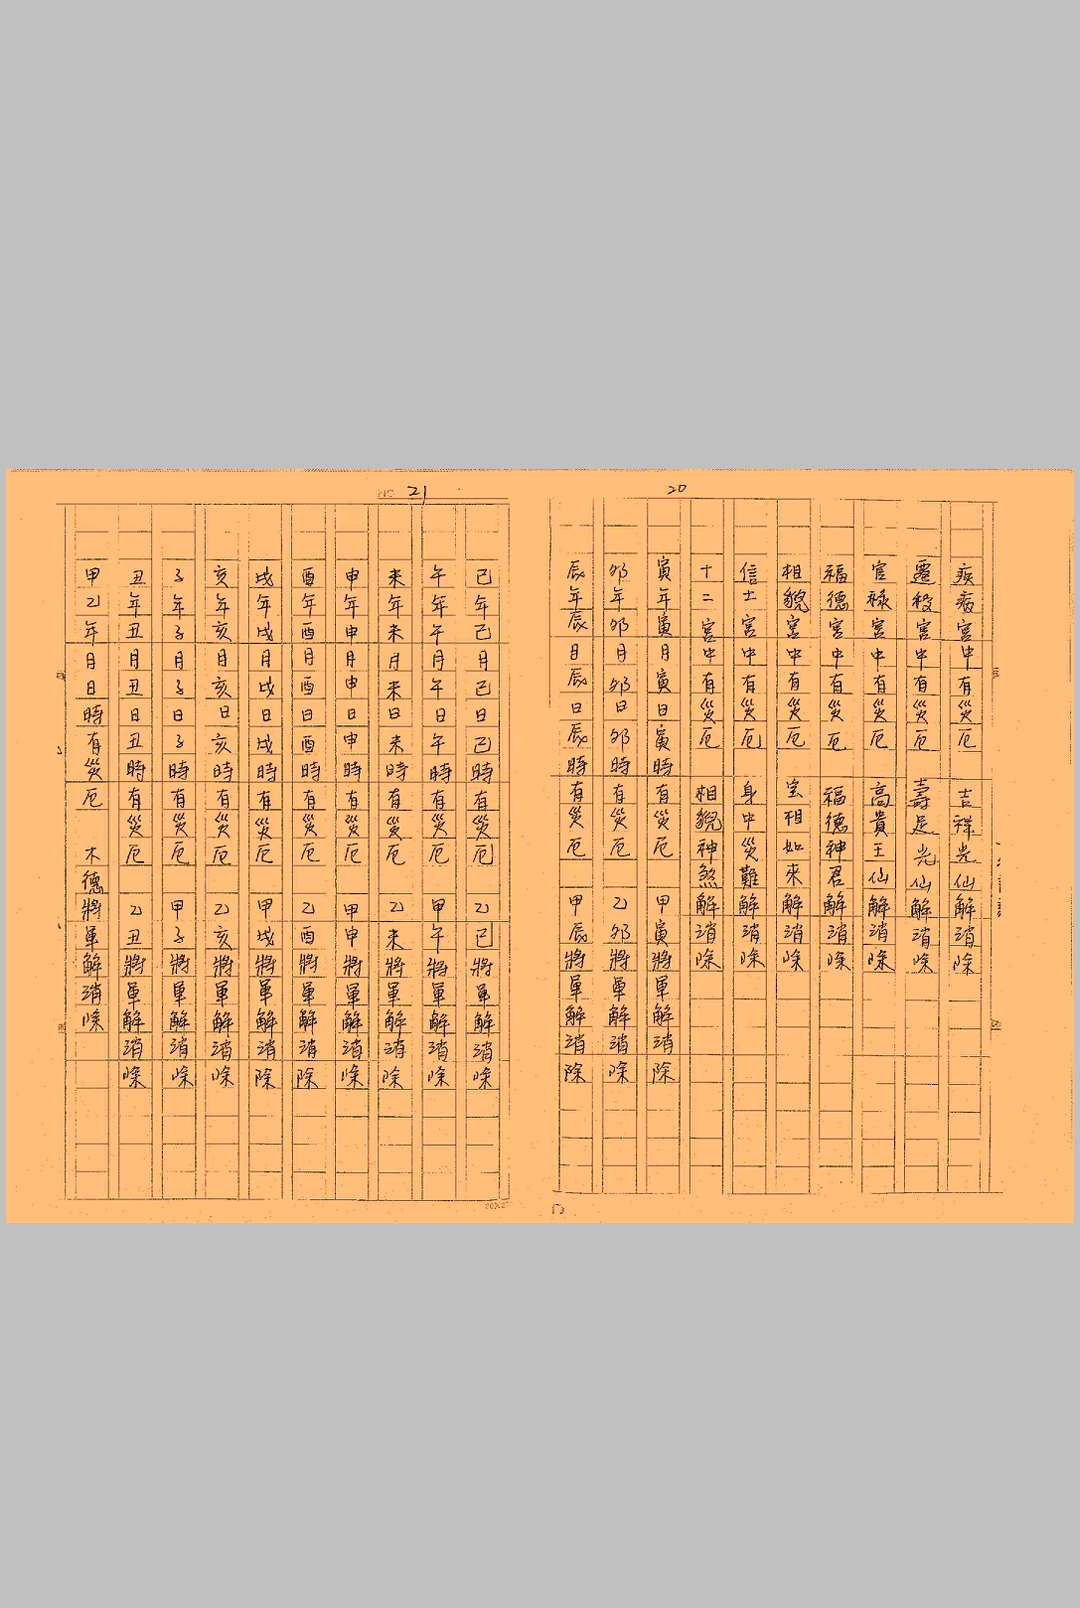 20
疾病宮中有災厄　吉祥光仙解消除
遷移宮中有災厄　壽足光仙解消除
官祿宮中有災厄　高貴王仙解消除
福德宮中有災厄　福德神君解消除
相貌宮中有災厄　宝相如來解消除
信士宮中有災厄　身中災難解消除
十二宮中有災厄　相貌神煞解消除
寅年寅月寅日寅時有災厄　甲寅將軍解消除
卯年卯月卯日卯時有災厄　乙卯將軍解消除
辰年辰月辰日辰時有災厄　甲辰將軍解消除
21
巳年巳月巳日巳時有災厄　乙巳將軍解消除
午年午月午日午時有災厄　甲午將軍解消除
未年未月未日未時有災厄　乙未將軍解消除
申年申月申日申時有災厄　甲申將軍解消除
酉年酉月酉日酉時有災厄　乙酉將軍解消除
戌年戌月戌日戌時有災厄　甲戌將軍解消除
亥年亥月亥日亥時有災厄　乙亥將軍解消除
子年子月子日子時有災厄　甲子將軍解消除
丑年丑月丑日丑時有災厄　乙丑將軍解消除
甲乙年月日時有災厄　木德將軍解消除